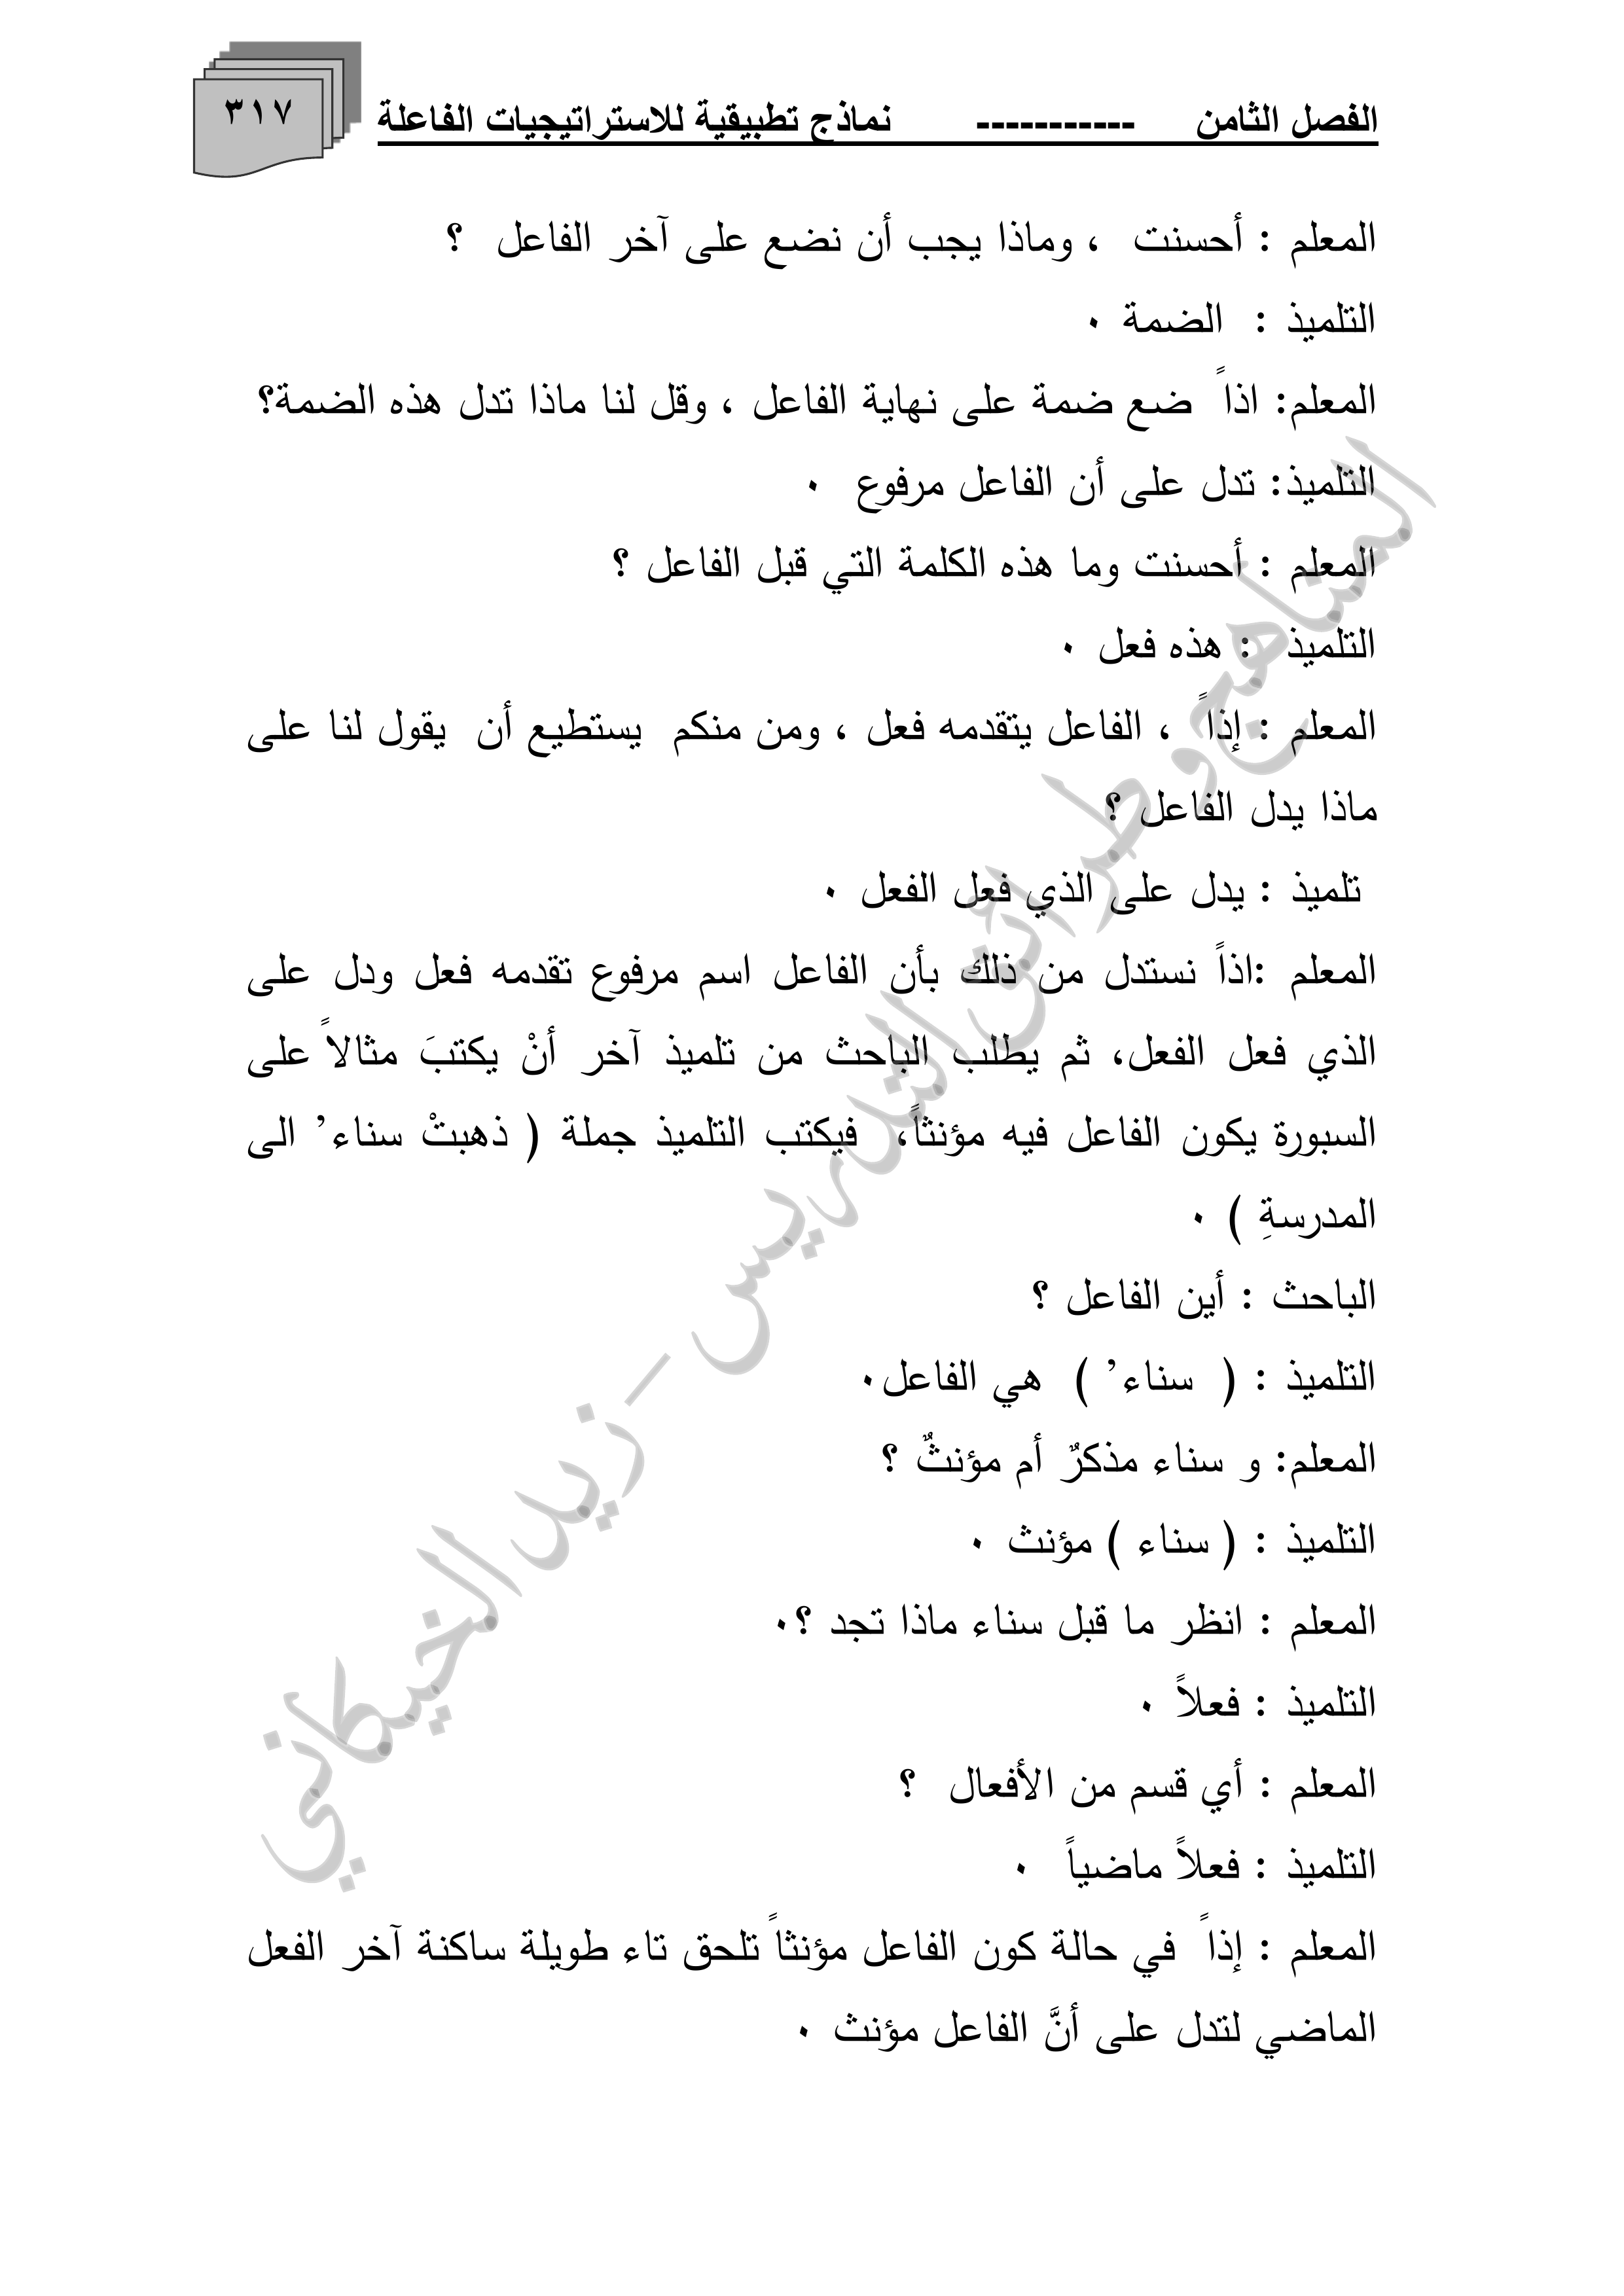 الفصل الثامن ----------- نماذج تطبيقية للاستراتيجيات الفاعلة
٣١٧
المعلم : أحسنت ، وماذا يجب أن نضع على آخر الفاعل ؟
التلميذ : الضمة ٠
المعلم: اذاً ضع ضمة على نهاية الفاعل ، وقل لنا ماذا تدل هذه الضمة؟
التلميذ: تدل على أن الفاعل مرفوع ٠
المعلم : أحسنت وما هذه الكلمة التي قبل الفاعل ؟
التلميذ : هذه فعل ٠
المعلم : إذاً ، الفاعل يتقدمه فعل ، ومن منكم يستطيع أن يقول لنا على
ماذا يدل الفاعل ؟
تلميذ : يدل على الذي فعل الفعل ٠
المعلم :اذاً نستدل من ذلك بأن الفاعل اسم مرفوع تقدمه فعل ودل على
الذي فعل الفعل، ثم يطلب الباحث من تلميذ آخر أنْ يكتبَ مثالاً على
السبورة يكون الفاعل فيه مؤنثاً، فيكتب التلميذ جملة ( ذهبتْ سناء’ الى
المدرسةِ ) ٠
الباحث : أين الفاعل ؟
التلميذ : ( سناء’ ) هي الفاعل٠
المعلم: و سناء مذكرٌ أم مؤنثٌ ؟
التلميذ : ( سناء ) مؤنث ٠
المعلم : انظر ما قبل سناء ماذا تجد ؟٠
التلميذ : فعلاً ٠
المعلم : أي قسم من الأفعال ؟
التلميذ : فعلاً ماضياً ٠
المعلم : إذاً في حالة كون الفاعل مؤنثاً تلحق تاء طويلة ساكنة آخر الفعل
الماضي لتدل على أنَّ الفاعل مؤنث ٠
المناهج وطرائق التدريس - زيد الخيكاني